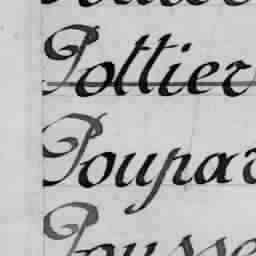 Pottier
Poupar
Pousse